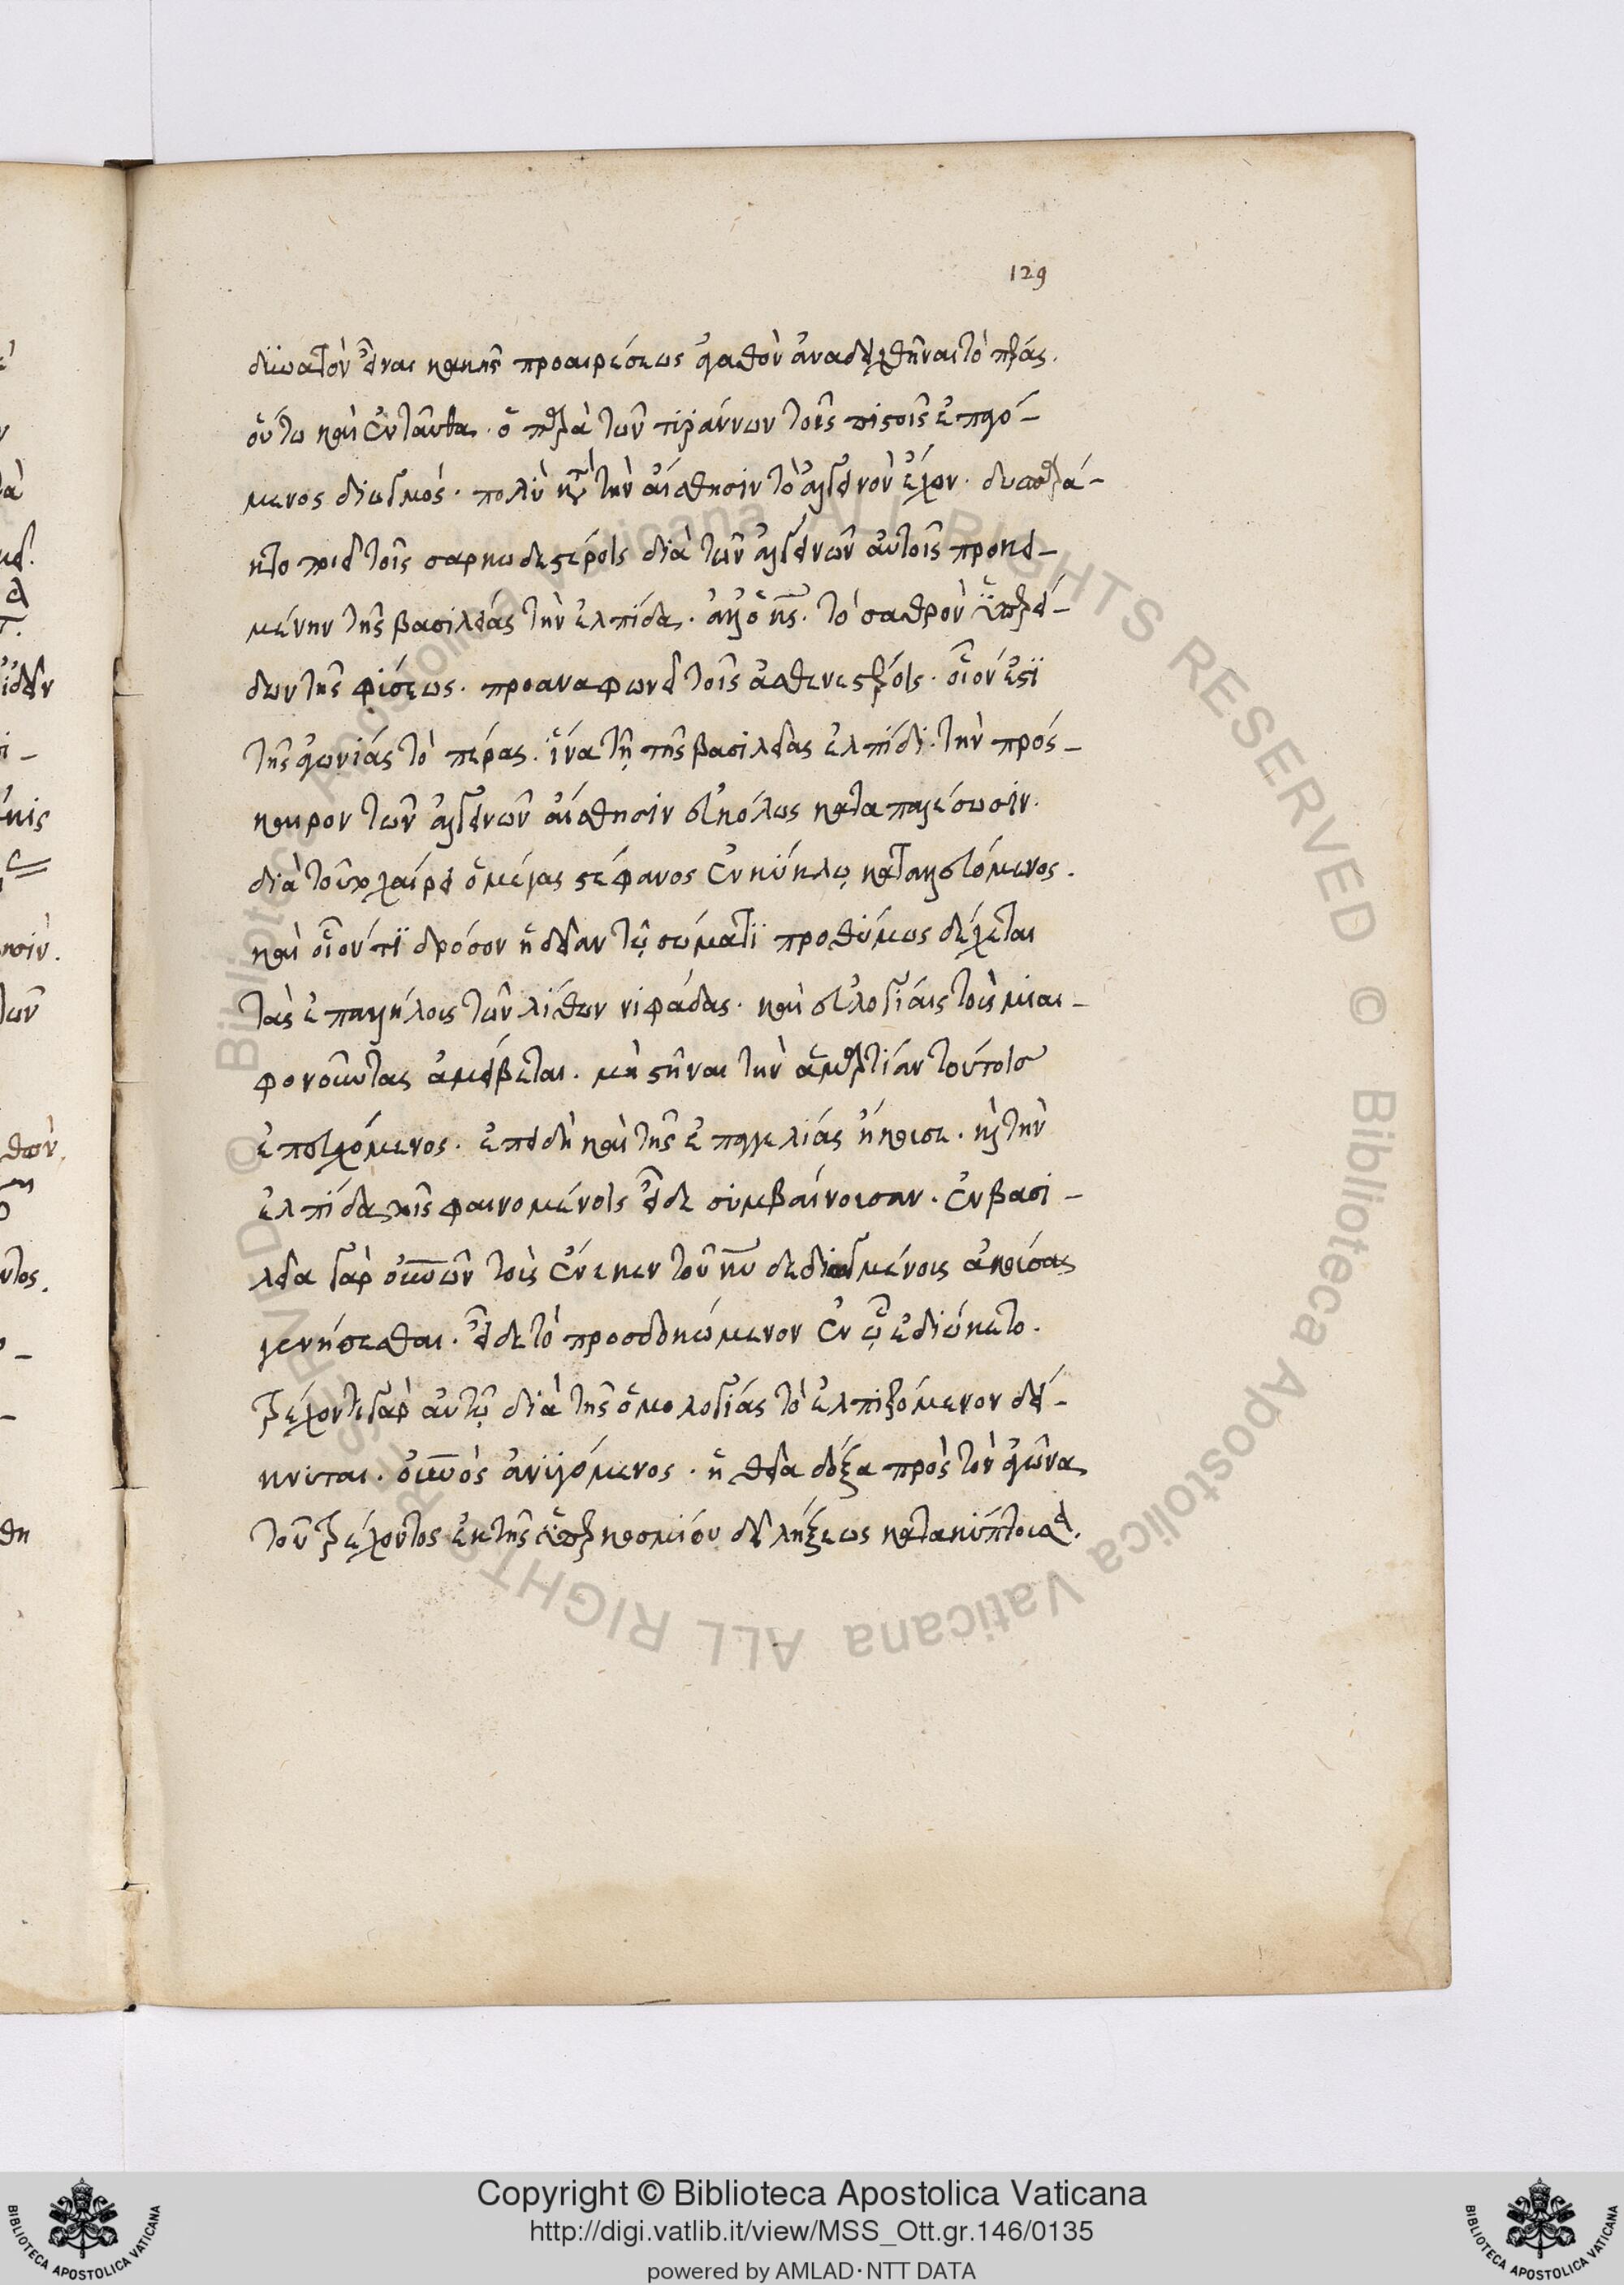 129
δυνατὸν εἶναι κακῆς προαιρέσεως ἀγαθὸν ἀναδειχθῆναι τὸ πέρας.
οὕτω καὶ ἐνταῦθα. ὁ παρὰ τῶν τυράννων τοῖς πιστοῖς ἐπαγό-
μενος διωγμός. πολὺ κατὰ τὴν αἴσθησιν τὸ ἀλγεινὸν ἔχων. δυσπαρά-
δεκτον ποιεῖ τοῖς σαρκωδεστέροις διὰ τῶν ἀλγεινῶν αὐτοῖς προκει-
μένην τῆς βασιλείας τὴν ἐλπίδα. ἀλλ' ὁ κς. τὸ σαθρὸν ὑπερεί-
δων τῆς φύσεως. προαναφωνεῖ τοῖς ἀσθενεστέροις. οἷόν ἐστι
τῆς ἀγωνίας τὸ πέρας. ἵνα τῇ τῆς βασιλείας ἐλπίδι. τὴν πρόσ-
καιρον τῶν ἀλγεινῶν αἴσθησιν εὐκόλως καταπαλαίσωσιν.
διὰ τοῦτο χαίρει ὁ μέγας στέφανος ἐν κύκλῳ καταλευόμενος.
καὶ οἷόν τι δρόσον ἡδεῖαν τῷ σώματι προθύμως δέχεται
τὰς ἐπαλλήλους τῶν λίθων νιφάδας. καὶ εὐλογίαις τοὺς μιαι-
φονοῦντας ἀμείβεται. μὴ στῆναι τὴν ἁμαρτίαν τούτοις
ἐπευχόμενος. ἐπειδὴ καὶ τῆς ἐπαγγελίας ἤκουσε. καὶ τὴν
ἐλπίδα τοῖς φαινομένοις εἶδε συμβαίνουσαν. ἐν βασι-
λείᾳ γὰρ οὐνῶν τοὺς ἕνεκεν τοῦ κυ δεδιωγμένους ἀκούσας
γενήσεσθαι. εἶδε τὸ προσδοκώμενον ἐν ᾧ ἐδιώκετο.
τρέχοντι γὰρ αὐτῷ διὰ τῆς ὁμολογίας τὸ ἐλπιζόμενον δεί-
κνυται. οὐνὸς ἀνοιγόμενος. ἡ θεία δόξα πρὸς τὸν ἀγῶνα
τοῦ τρέχοντος ἐκ τῆς ὑπερκοσμίου λήξεως κατακύπτουσα.
Copyright © Biblioteca Apostolica Vaticana
http://digi.vatlib.it/view/MSS_Ott.gr.146/0135
powered by AMLAD·NTT DATA
BIBLIOTECA APOSTOLICA VATICANA
BIBLIOTECA APOSTOLICA VATICANA
© Biblioteca Apostolica Vaticana ALL RIGHTS RESERVED © Biblioteca Apostolica Vaticana ALL RIGHTS RESERVED